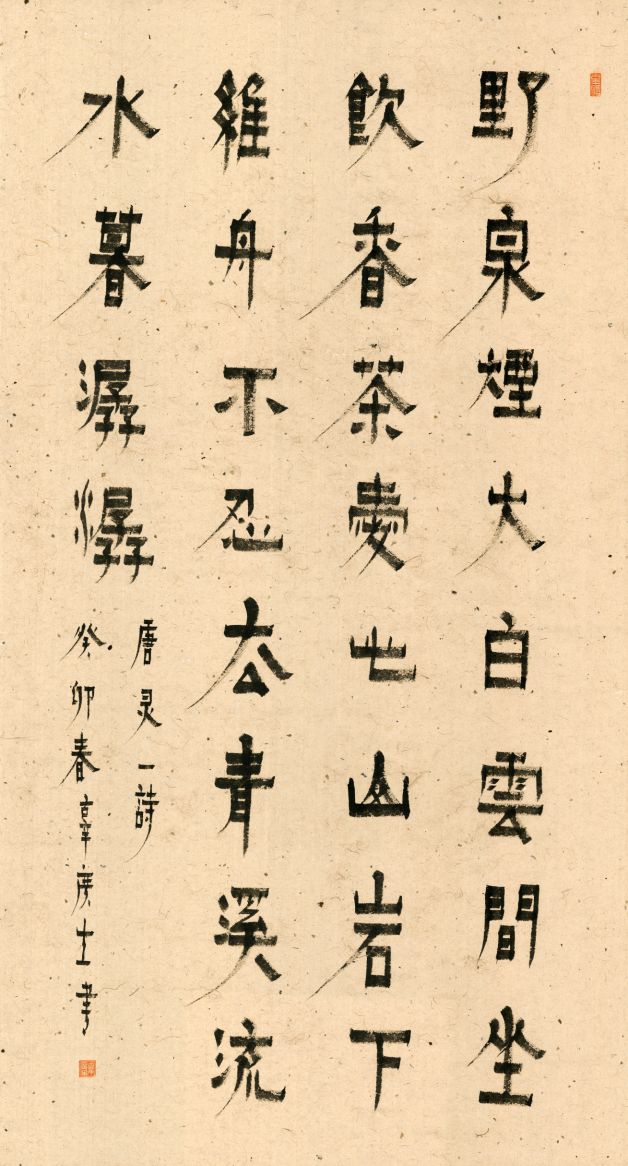 野泉煙火白雲間坐
飲香茶愛此山岩下
維舟不忍去青溪流
水暮潺潺
唐灵一詩
癸卯春書